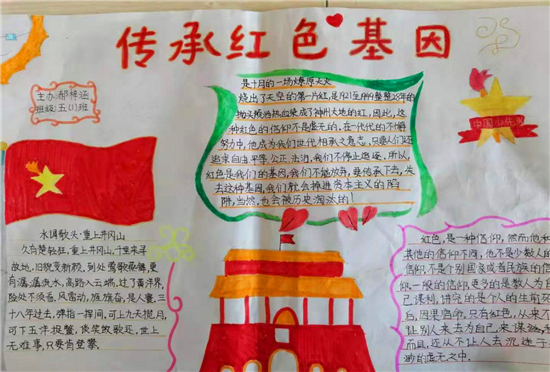 传承红色基因
主办:郝梓涵
班级:五(1)班
是十月的一场燎原大火
烧出了天空的第一片红,是1921至1949整整28年的
抛头颅洒热血染成了神州大地的红,因此,这
种红色的信仰不是虚无的,在一代代的不懈
努力中,他成为我们世代相承之意志,只要人们还
追求自由、平等、公正、法治,我们不停追逐,所以,
红色是我们的基因,我们不能放弃,要传承下去,失
去这种基因,我们就会掉进资本主义的陷
阱,当然,也会被历史淘汰的!
中国少先队
水调歌头·重上井冈山
久有凌云志,重上井冈山,千里来寻
故地,旧貌变新颜,到处莺歌燕舞,更
有潺潺流水,高路入云端,过了黄洋界,
险处不须看,风雷动,旌旗奋,是人寰,三
十八年过去,弹指一挥间,可上九天揽月,
可下五洋捉鳖,谈笑凯歌还,世上
无难事,只要肯登攀.
红色,是一种信仰,然而他和
其他的信仰不同,他不是少数人的
信仰不是个别国家或者民族的信
仰,一般的信仰,更多的是教人为自
己谋利,讲究的是个人的生前死
后,因果宿命,只有红色,从来不
让别人来去为自己,来谋
而且,还从不让人去沉迷于
渺的虚无之中.